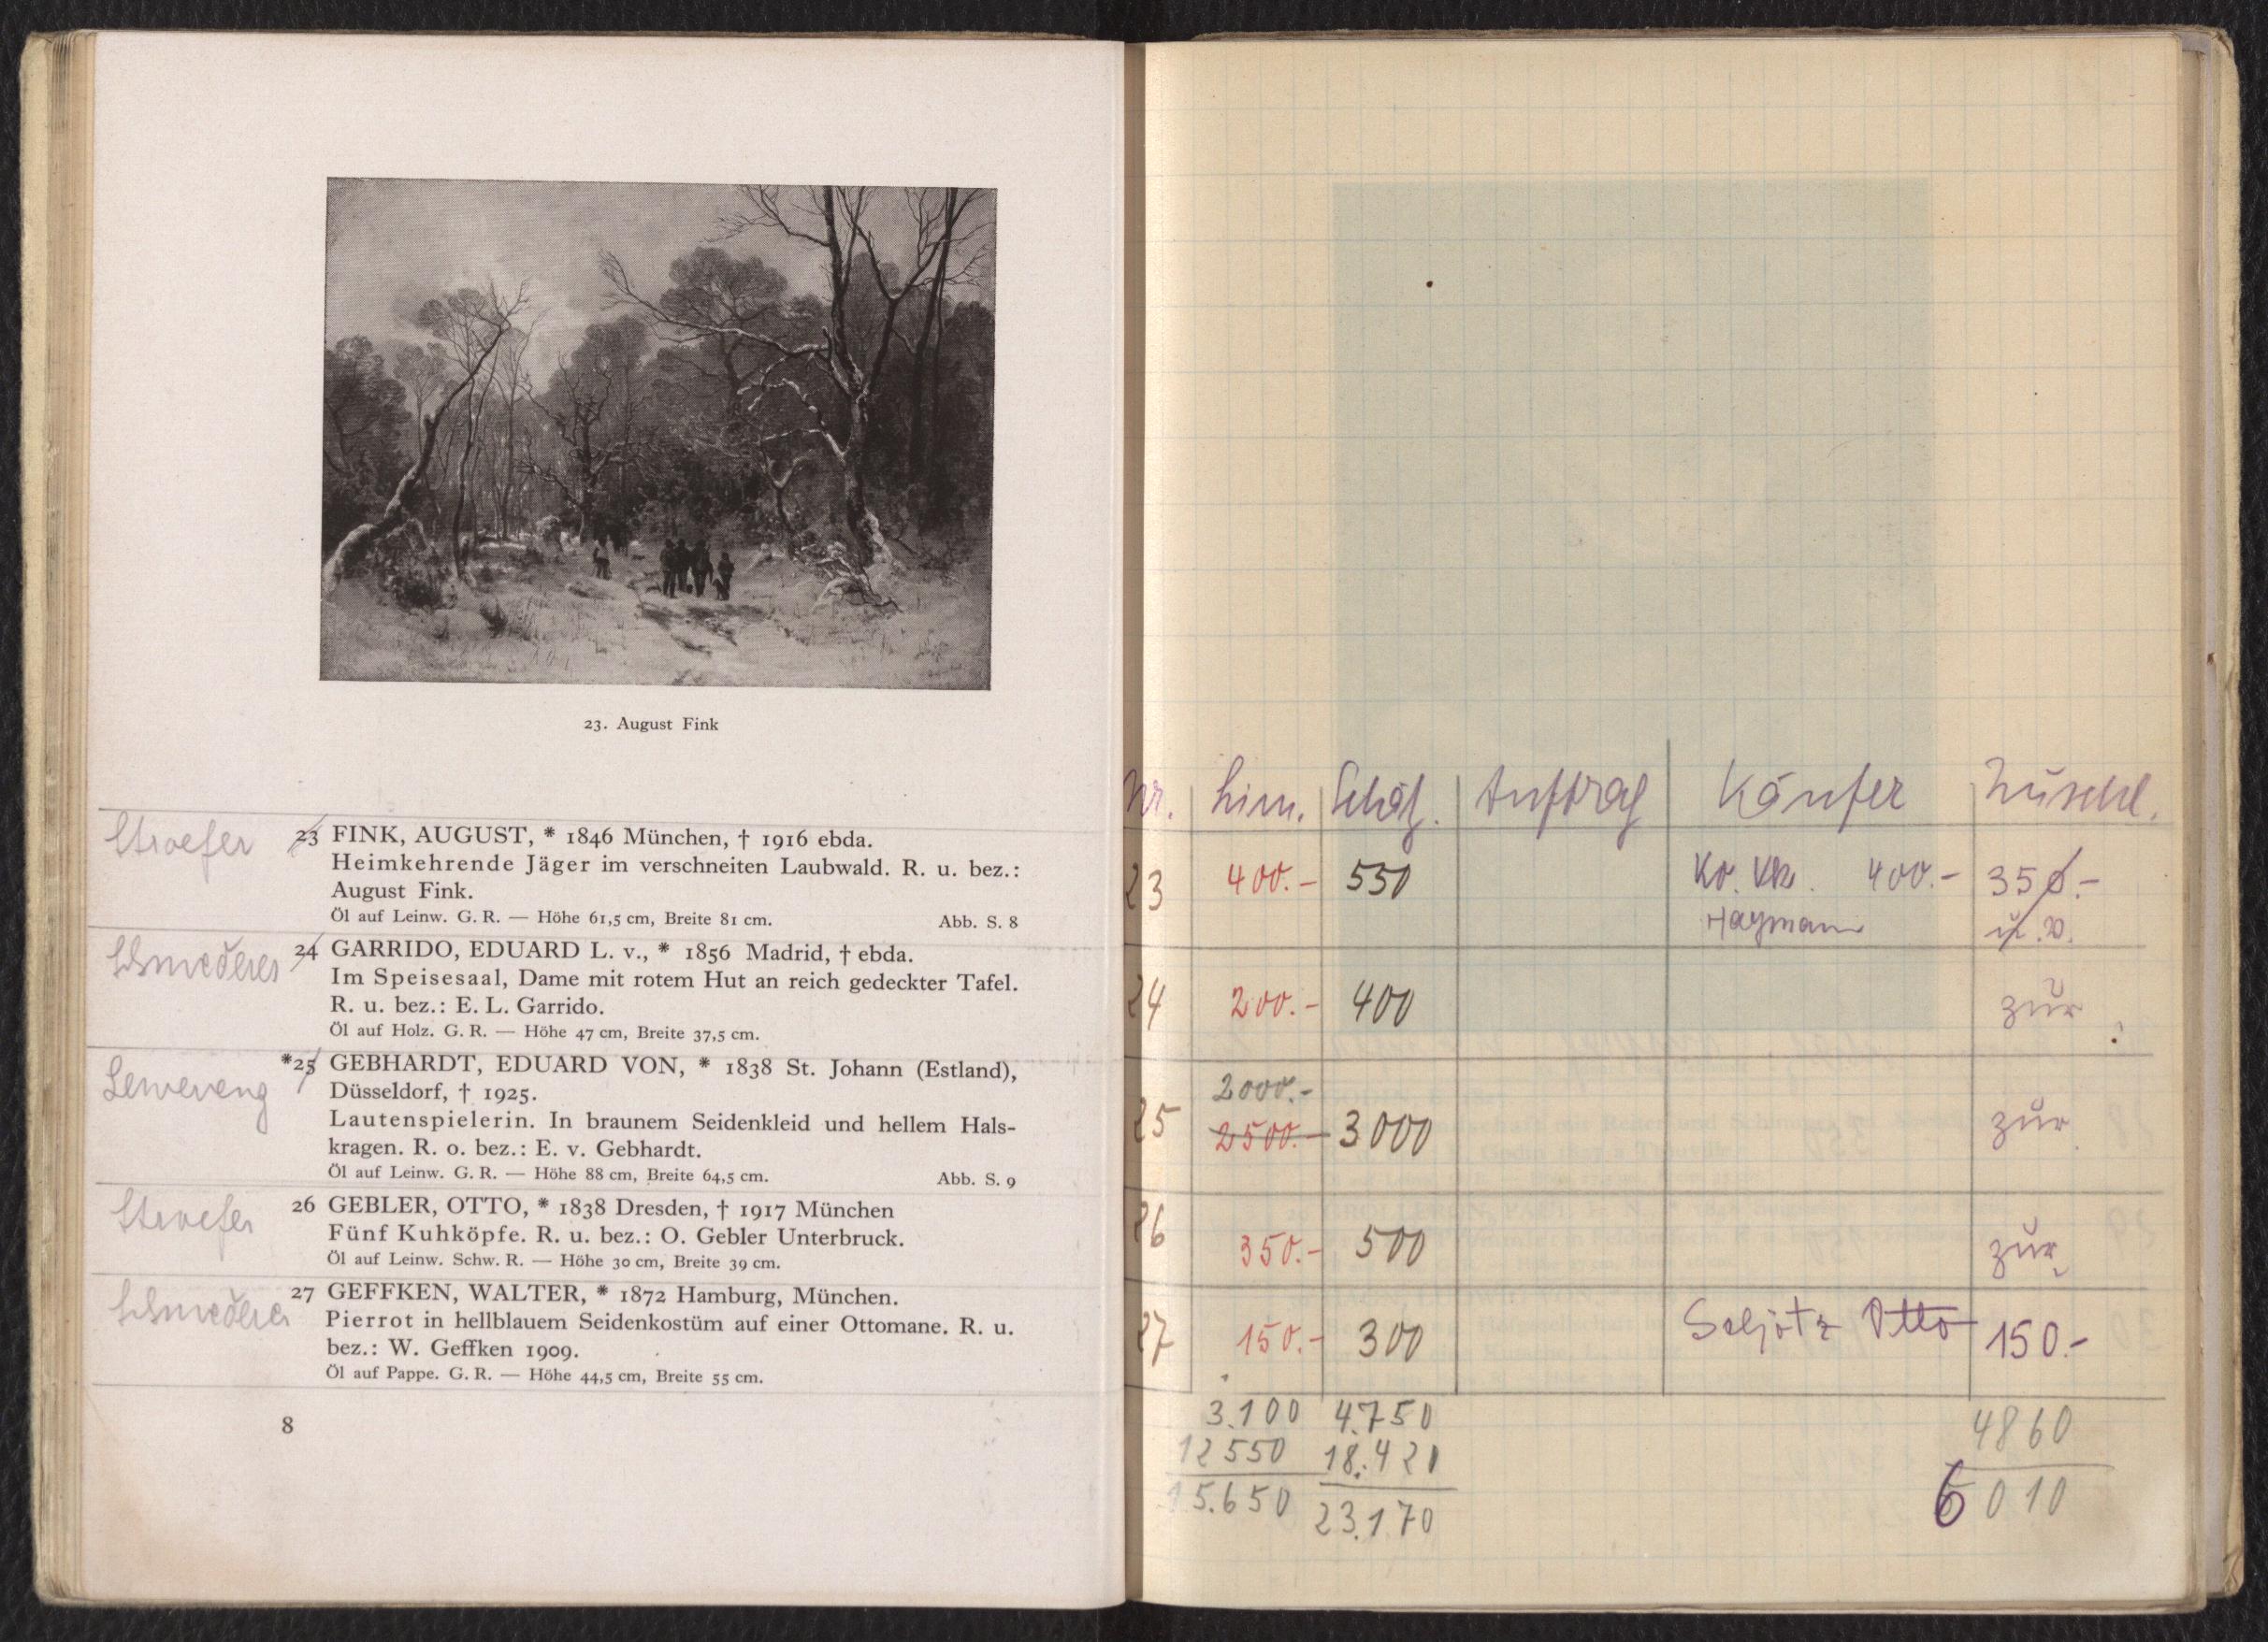 23. August Fink
Stroefer
23 FINK, AUGUST, * 1846 München, † 1916 ebda.
Heimkehrende Jäger im verschneiten Laubwald. R. u. bez.:
August Fink.
Öl auf Leinw. G. R. — Höhe 61,5 cm, Breite 81 cm. Abb. S. 8
Schmederer
24 GARRIDO, EDUARD L. v., * 1856 Madrid, † ebda.
Im Speisesaal, Dame mit rotem Hut an reich gedeckter Tafel.
R. u. bez.: E. L. Garrido.
Öl auf Holz. G. R. — Höhe 47 cm, Breite 37,5 cm.
*25 GEBHARDT, EDUARD VON, * 1838 St. Johann (Estland),
Düsseldorf, † 1925.
Lautenspielerin. In braunem Seidenkleid und hellem Hals-
kragen. R. o. bez.: E. v. Gebhardt.
Öl auf Leinw. G. R. — Höhe 88 cm, Breite 64,5 cm. Abb. S. 9
Stroefer
26 GEBLER, OTTO, * 1838 Dresden, † 1917 München
Fünf Kuhköpfe. R. u. bez.: O. Gebler Unterbruck.
Öl auf Leinw. Schw. R. — Höhe 30 cm, Breite 39 cm.
Schmederer
27 GEFFKEN, WALTER, * 1872 Hamburg, München.
Pierrot in hellblauem Seidenkostüm auf einer Ottomane. R. u.
bez.: W. Geffken 1909.
Öl auf Pappe. G. R. — Höhe 44,5 cm, Breite 55 cm.
8
Nr. Lim. Schätz. Auftrag Käufer Zuschl.
23 400.- 550 400.- 350.-
Haymann
24 200.- 400 zur
2000.-
25 2500.- 3000 zur
26 350.- 500 zur
27 150.- 300 Otto 150.-
3.100 4.750 4860
12550 18.420
15.650 23.170 6010